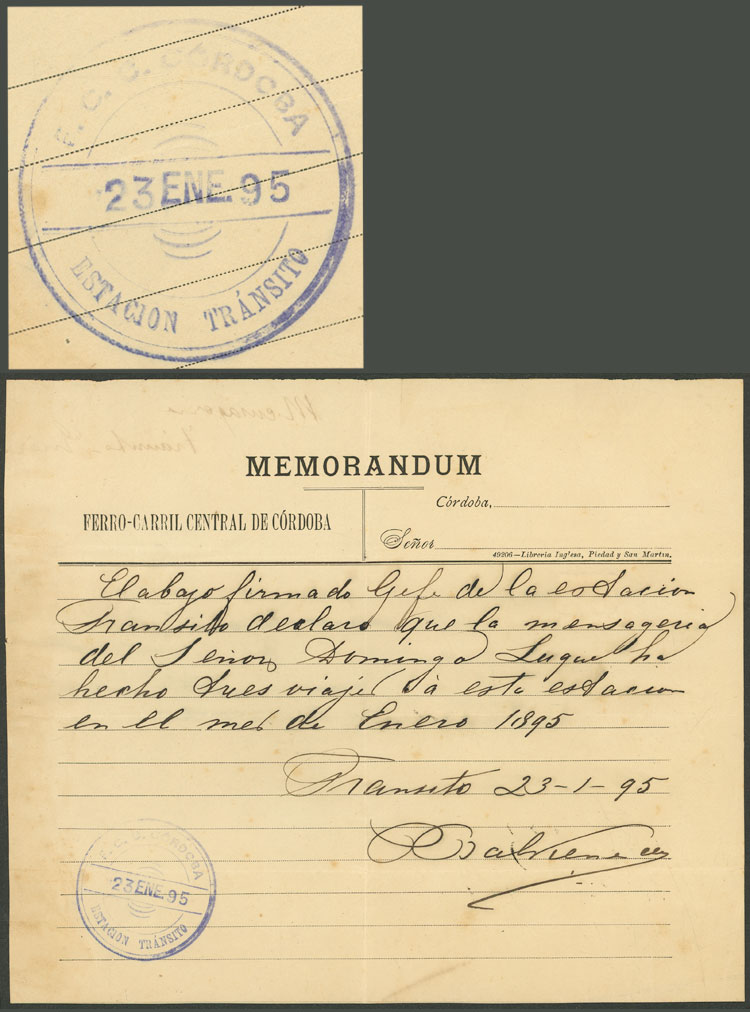 F. C. C. CÓRDOBA
23 ENE. 95
ESTACION TRÁNSITO
MEMORANDUM
FERRO-CARRIL CENTRAL DE CÓRDOBA
Córdoba,
Señor
49206—Libreria Inglesa, Piedad y San Martin.
El abajo firmado Gefe de la estacion
Transito declaro que la mensageria
del Señor Domingo Luque ha
hecho tres viajes à esta estacion
en el mes de Enero 1895
Transito 23-1-95
F. C. C. CÓRDOBA
23 ENE. 95
ESTACION TRÁNSITO